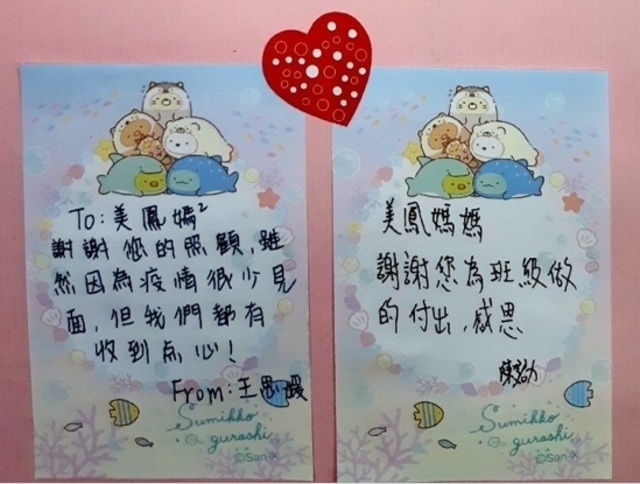 To：美鳳媽²
謝謝您的照顧，雖
然因為疫情很少見
面，但我們都有
收到点心！
From：王思媛
Sumikko
gurashi
©San-X
美鳳媽媽
謝謝您為班級做
的付出，感恩
陳
Sumikko
gurashi
©San-X